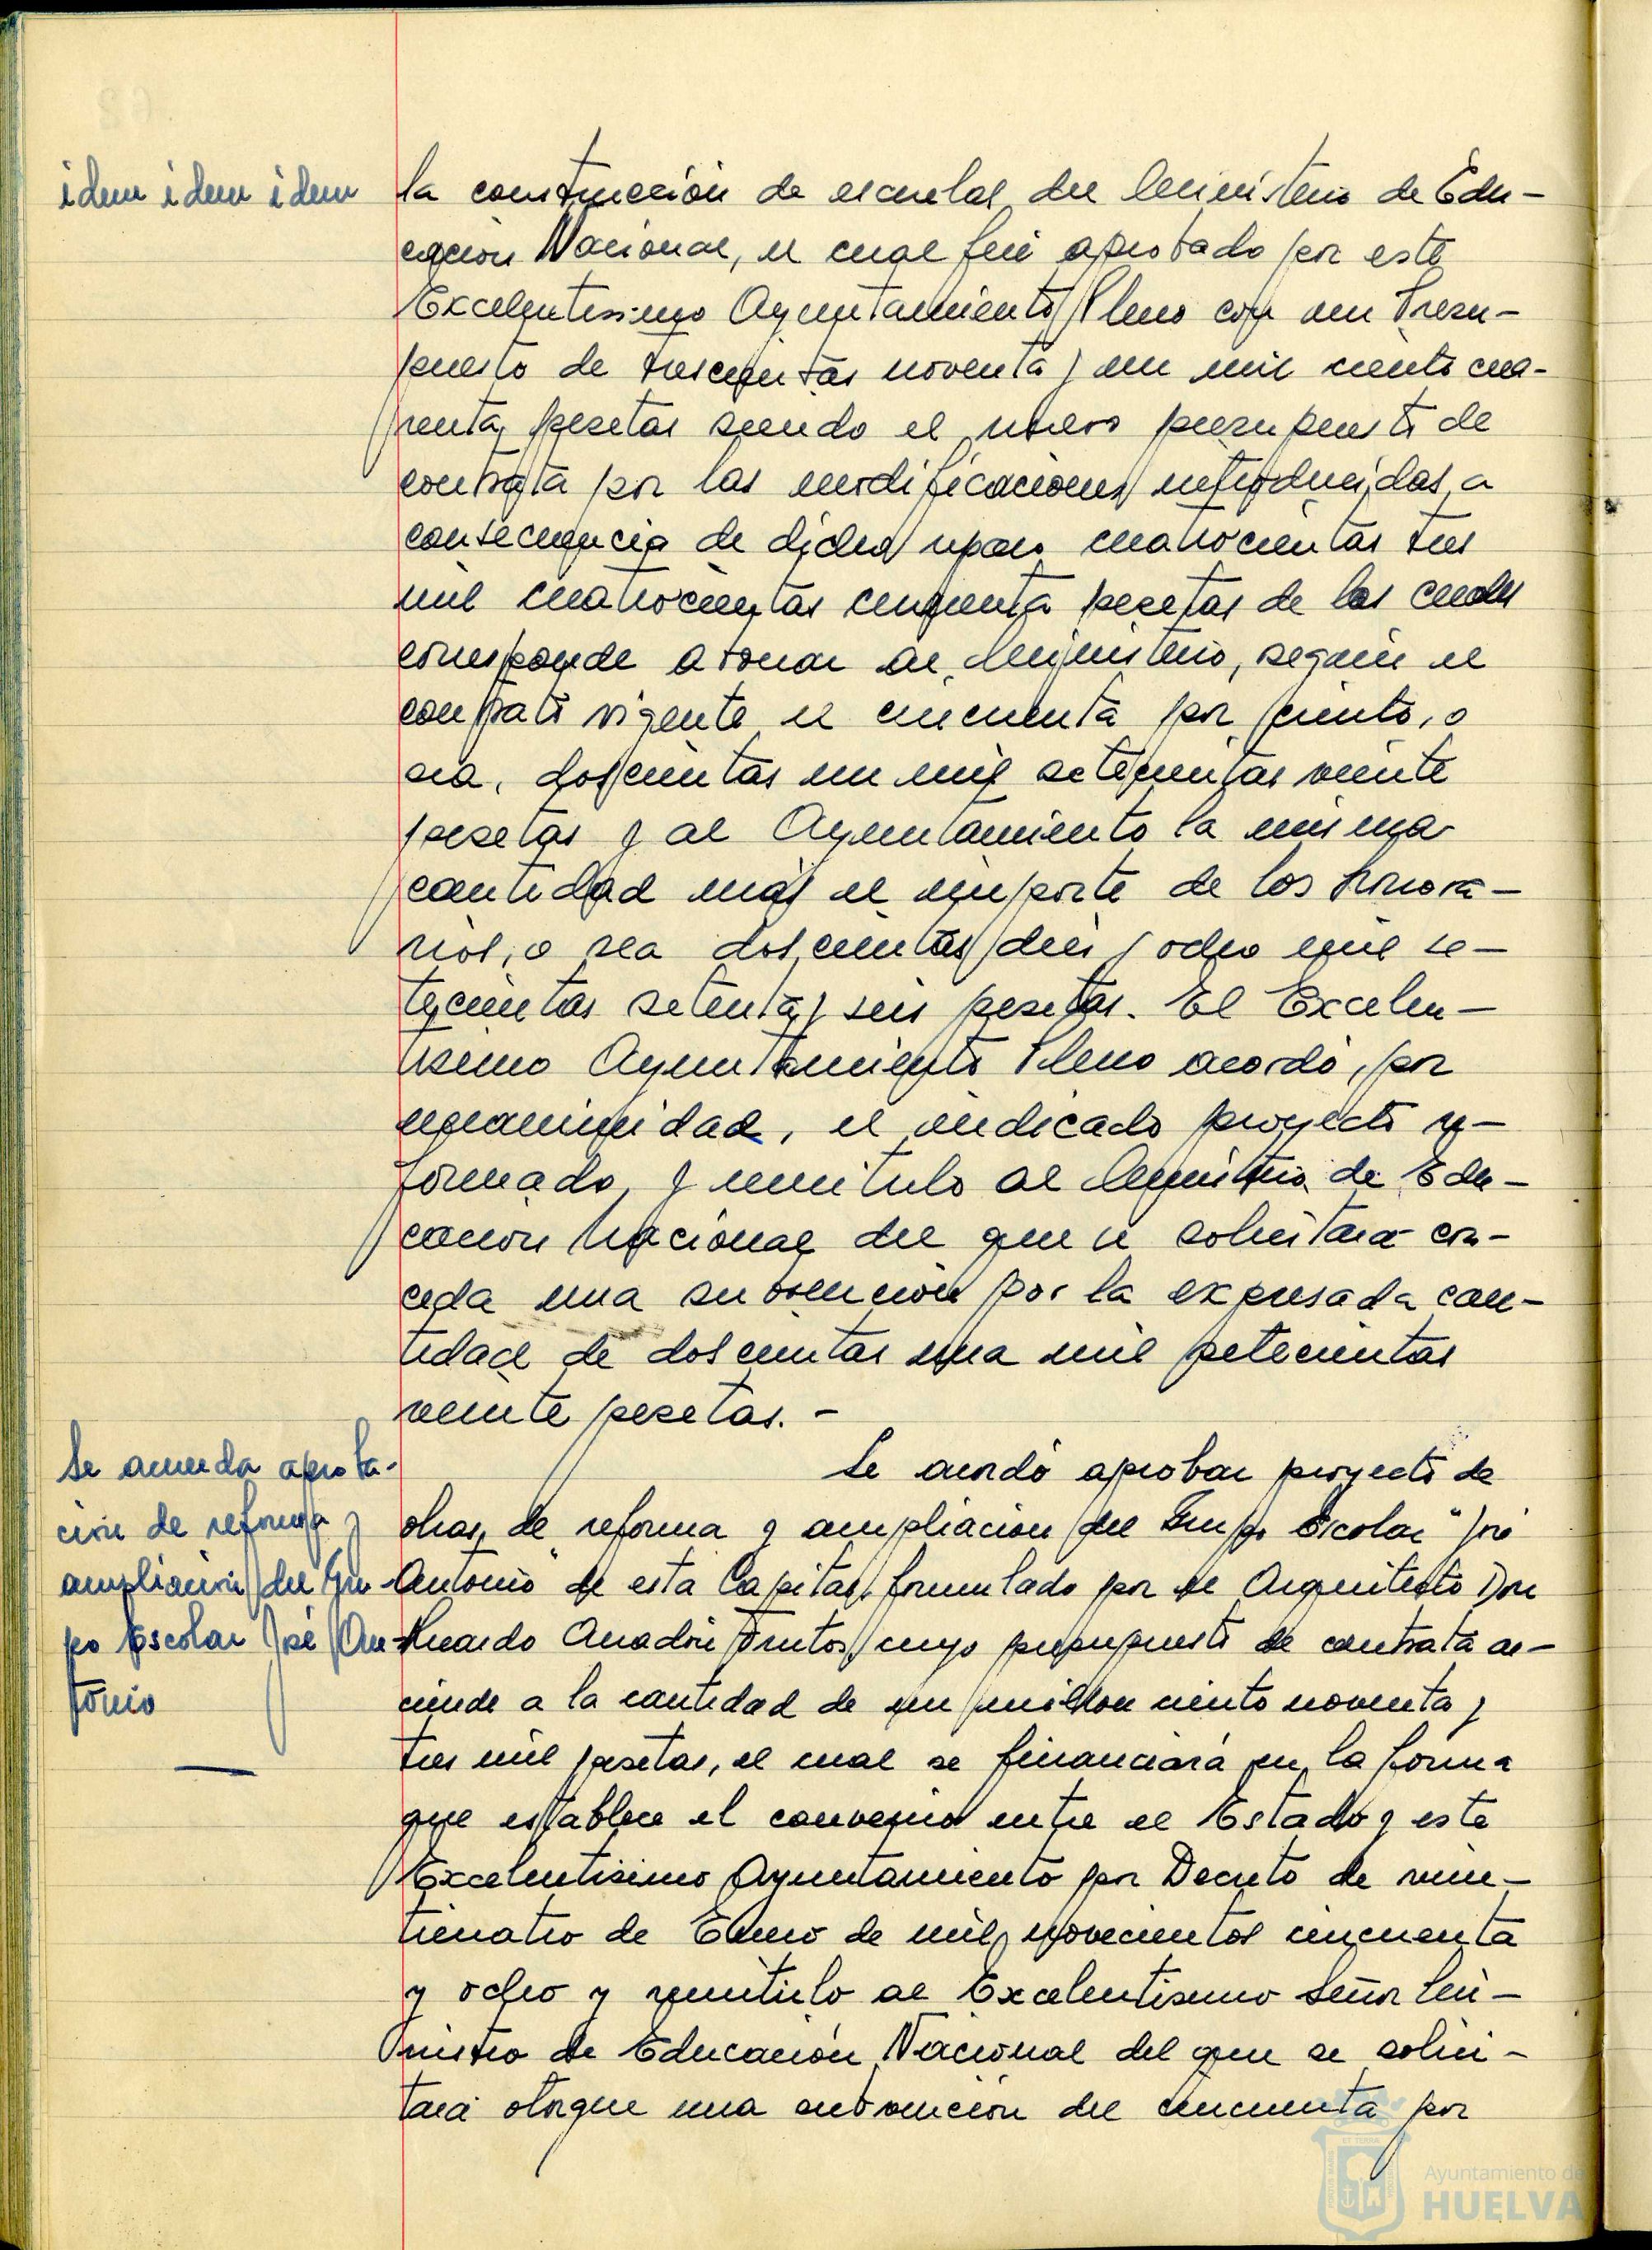 idem idem idem
la construcción de escuelas del Ministerio de Edu-
cación Nacional, el cual fué aprobado por este
Excelentissimo Ayuntamiento Pleno con un Presu-
puesto de trescientas noventa y un mil ciento cua-
renta pesetas siendo el nuevo presupuesto de
contrata por las modificaciones introducidas, a
consecuencia de dichos reparos cuatrocientas tres
mil cuatrocientas cincuenta pesetas de las cuales
corresponde abonar al Ministerio, según el
contrato vigente el cincuenta por ciento, o
sea, doscientas un mil setecientas veinte
pesetas y al Ayuntamiento la misma
cantidad más el importe de los honora-
rios, o sea doscientas diez y ocho mil se-
tecientas setenta y seis pesetas. El Excelen-
tisimo Ayuntamiento Pleno acordó, por
unanimidad, el indicado proyecto re-
formado, y remitirlo al Ministerio de Edu-
cación Nacional del que se solicitará con-
ceda una subvención por la expresada can-
tidad de doscientas una mil setecientas
veinte pesetas. -
Se acuerda aproba-
ción de reforma y
ampliación del Gru-
po Escolar José An-
tonio
Se acordó aprobar proyecto de
obras de reforma y ampliación del Grupo Escolar "José
Antonio" de esta Capital formulado por el Arquitecto Don
Ricardo Anadón Frutos, cuyo presupuesto de contrata as-
ciende a la cantidad de un millon ciento noventa y
tres mil pesetas, el cual se financiará en la forma
que establece el convenio entre el Estado y este
Excelentisimo Ayuntamiento por Decreto de vein-
ticuatro de Enero de mil novecientos cincuenta
y ocho y remitirlo al Excelentisimo Señor Mi-
nistro de Educación Nacional del que se solici-
tará otorgue una subvención del cincuenta por
Ayuntamiento de
HUELVA